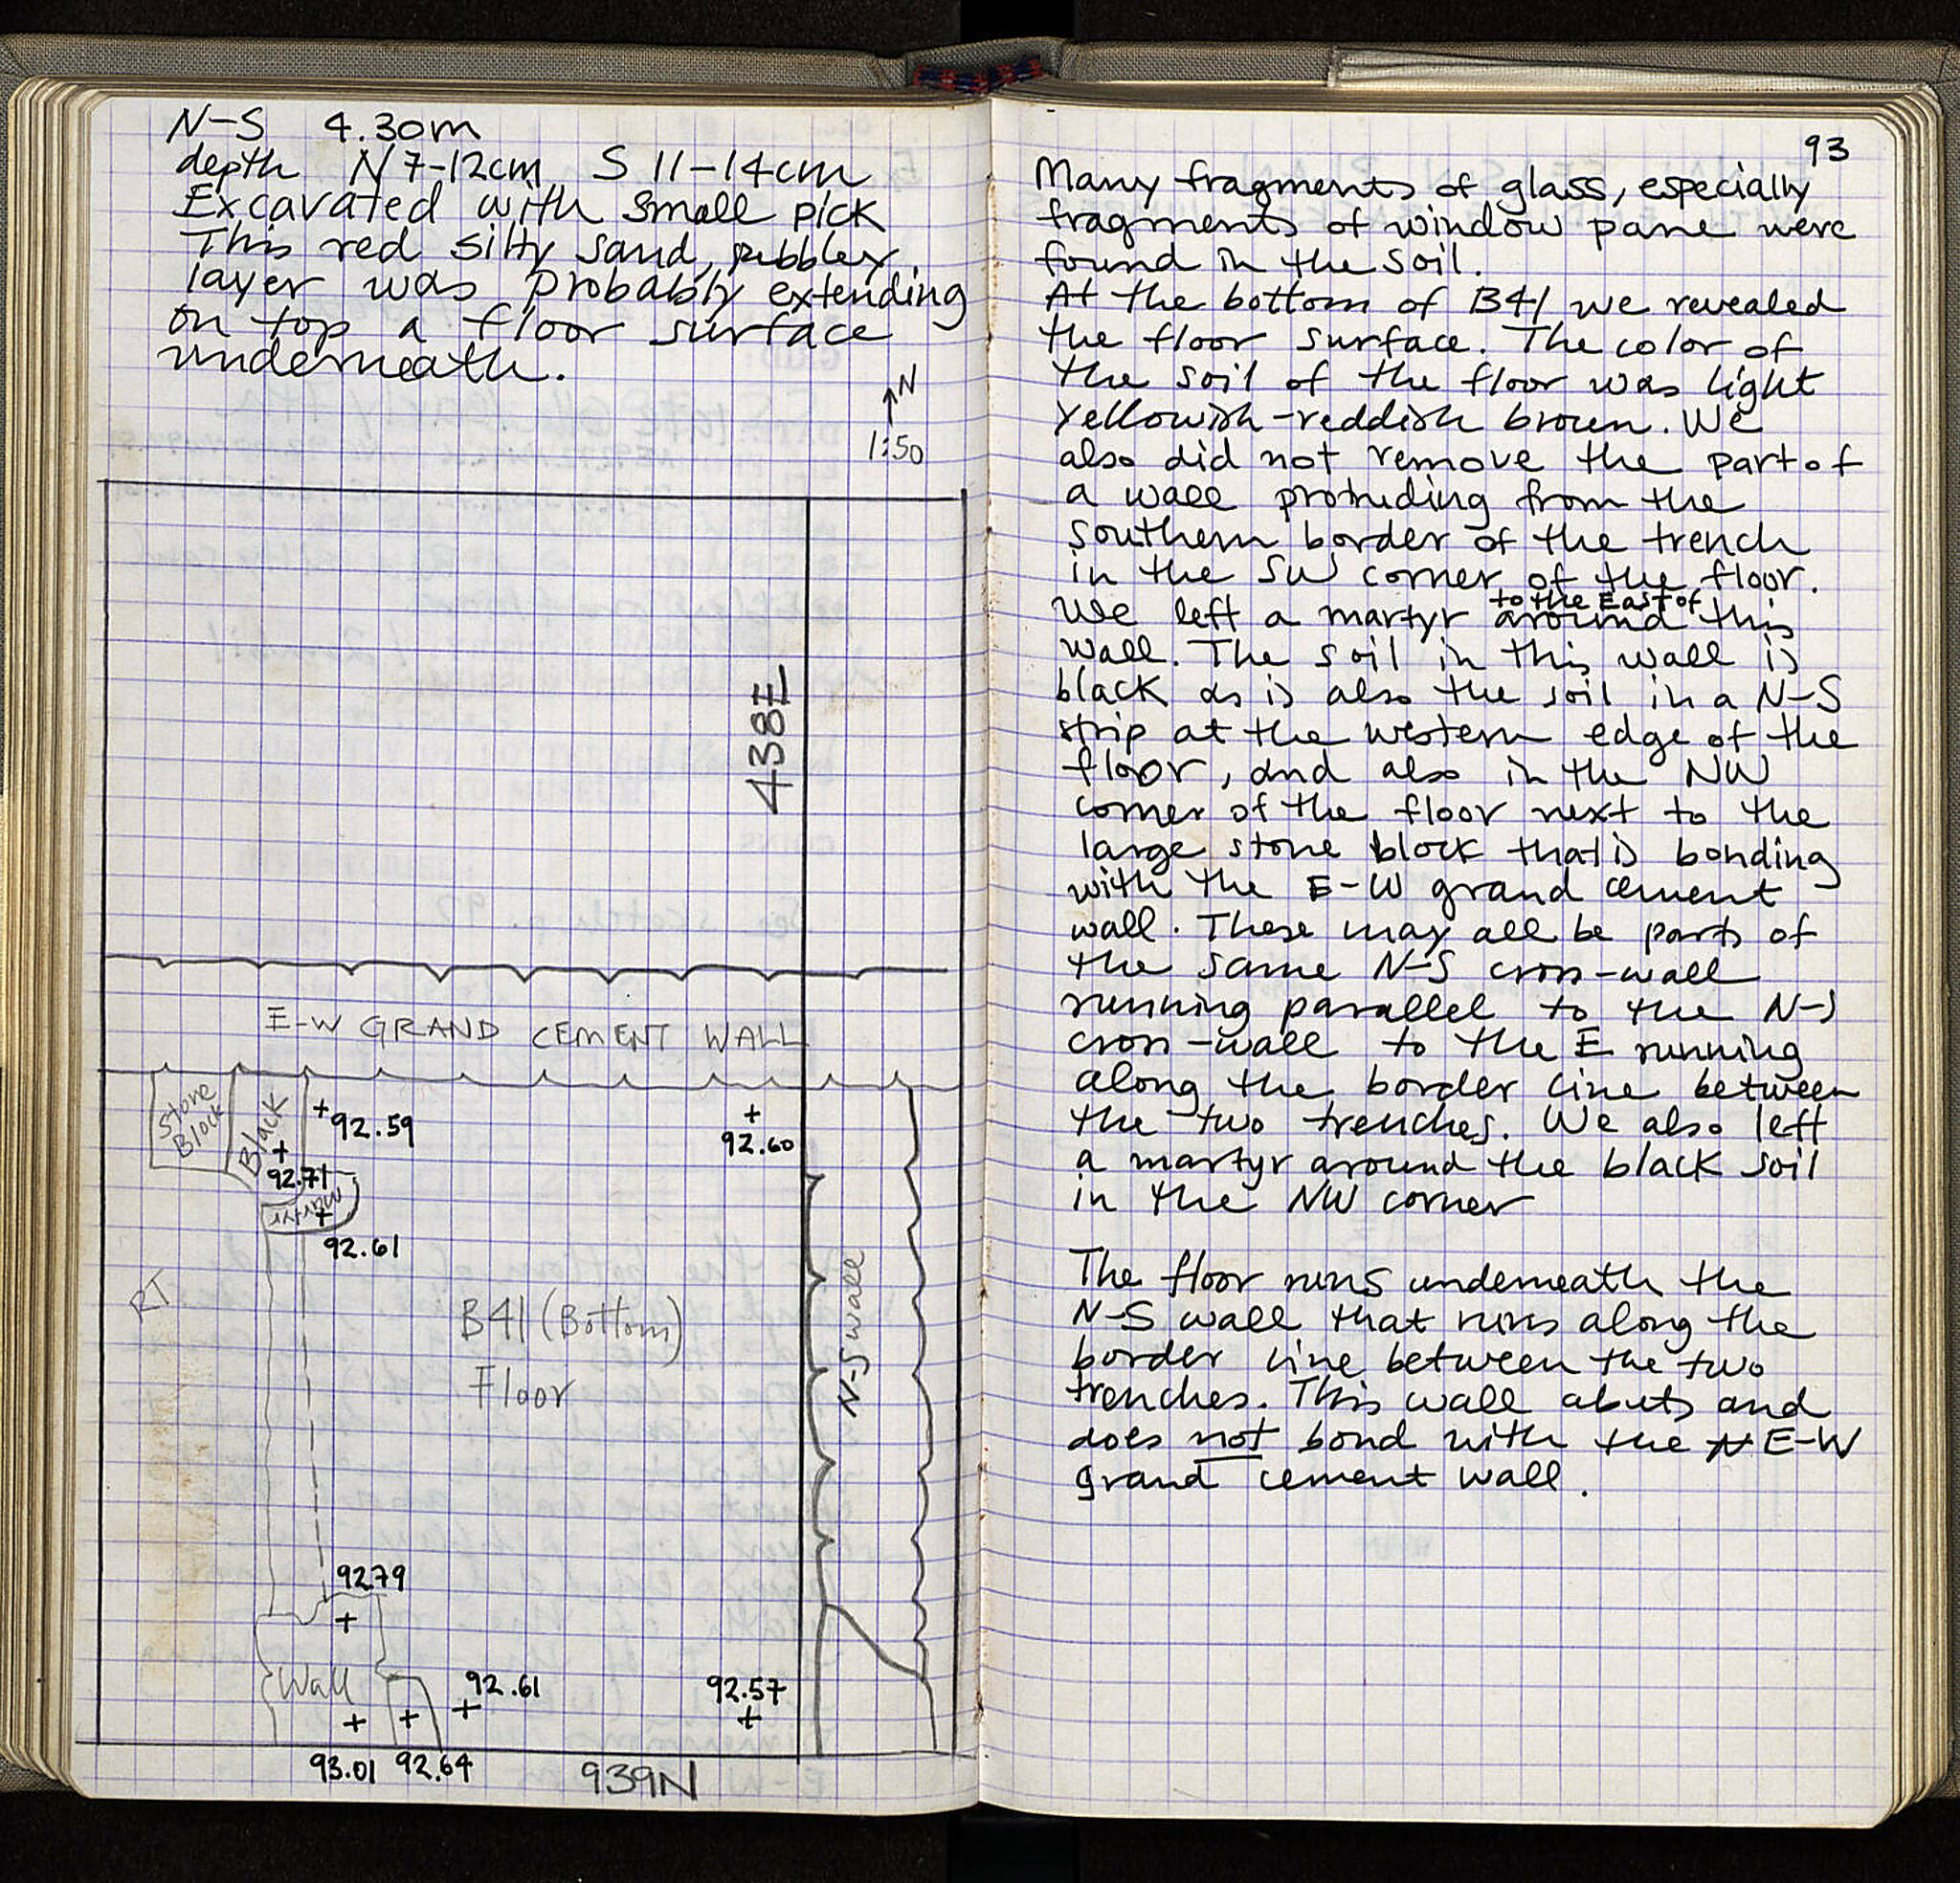 N-S 4.30m
depth N 7-12cm S 11-14cm
Excavated with small pick
This red silty sand, pebbley
layer was probably extending
on top a floor surface
underneath.
N
1:50
438E
E-W GRAND CEMENT WALL
Stone
Block
Black
92.71
92.59
92.60
92.61
RT
B41 (Bottom)
Floor
N-S wall
9279
Wall
92.61
92.57
93.01 92.64
939N
93
Many fragments of glass, especially
fragments of window pane were
found in the soil.
At the bottom of B41 we revealed
the floor surface. The color of
the soil of the floor was light
yellowish-reddish brown. We
also did not remove the part of
a wall protruding from the
southern border of the trench
in the SW corner of the floor.
to the East of
We left a martyr around this
wall. The soil in this wall is
black as is also the soil in a N-S
strip at the western edge of the
floor, and also in the NW
corner of the floor next to the
large stone block that is bonding
with the E-W grand cement
wall. These may all be parts of
the same N-S cross-wall
running parallel to the N-S
cross-wall to the E running
along the border line between
the two trenches. We also left
a martyr around the black soil
in the NW corner
The floor runs underneath the
N-S wall that runs along the
border line between the two
trenches. This wall abuts and
does not bond with the N E-W
grand cement wall.